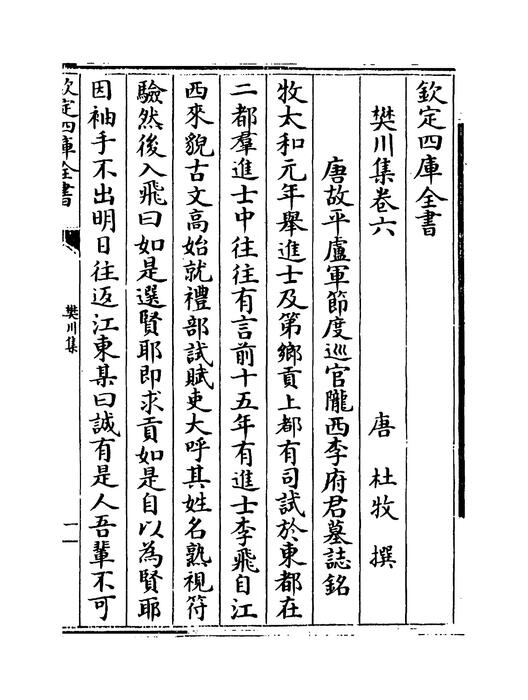 欽定四庫全書
樊川集卷六
唐 杜牧 撰
唐故平盧軍節度巡官隴西李府君墓誌銘
牧太和元年舉進士及第鄉貢上都有司試於東都在
二都羣進士中往往有言前十五年有進士李飛自江
西來貌古文高始就禮部試賦吏大呼其姓名熟視符
驗然後入飛曰如是選賢耶即求貢如是自以為賢耶
因袖手不出明日徃返江東某曰誠有是人吾輩不可
欽定四庫全書
樊川集
一